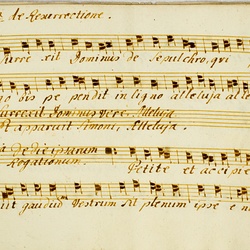 de Resurrectione.
urrexit Dominus de sepulchro, qui
pendit in ligno alleluja
urrexit Dominus vere. Alleluja
Et apparuit Simoni, Alleluja.
Rogationum.
Petite et accipie
gaudium Vestrum sit plenum ipse e